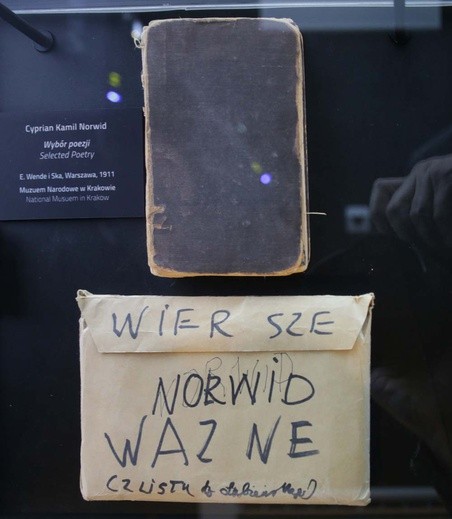 Cyprian Kamil Norwid
Wybór poezji
Selected Poetry
E. Wende i Ska, Warszawa, 1911
Muzuem Narodowe w Krakowie
National Musuem in Krakow
WiER SZE
NORWiD
WAZ NE
(Z LiSTU do